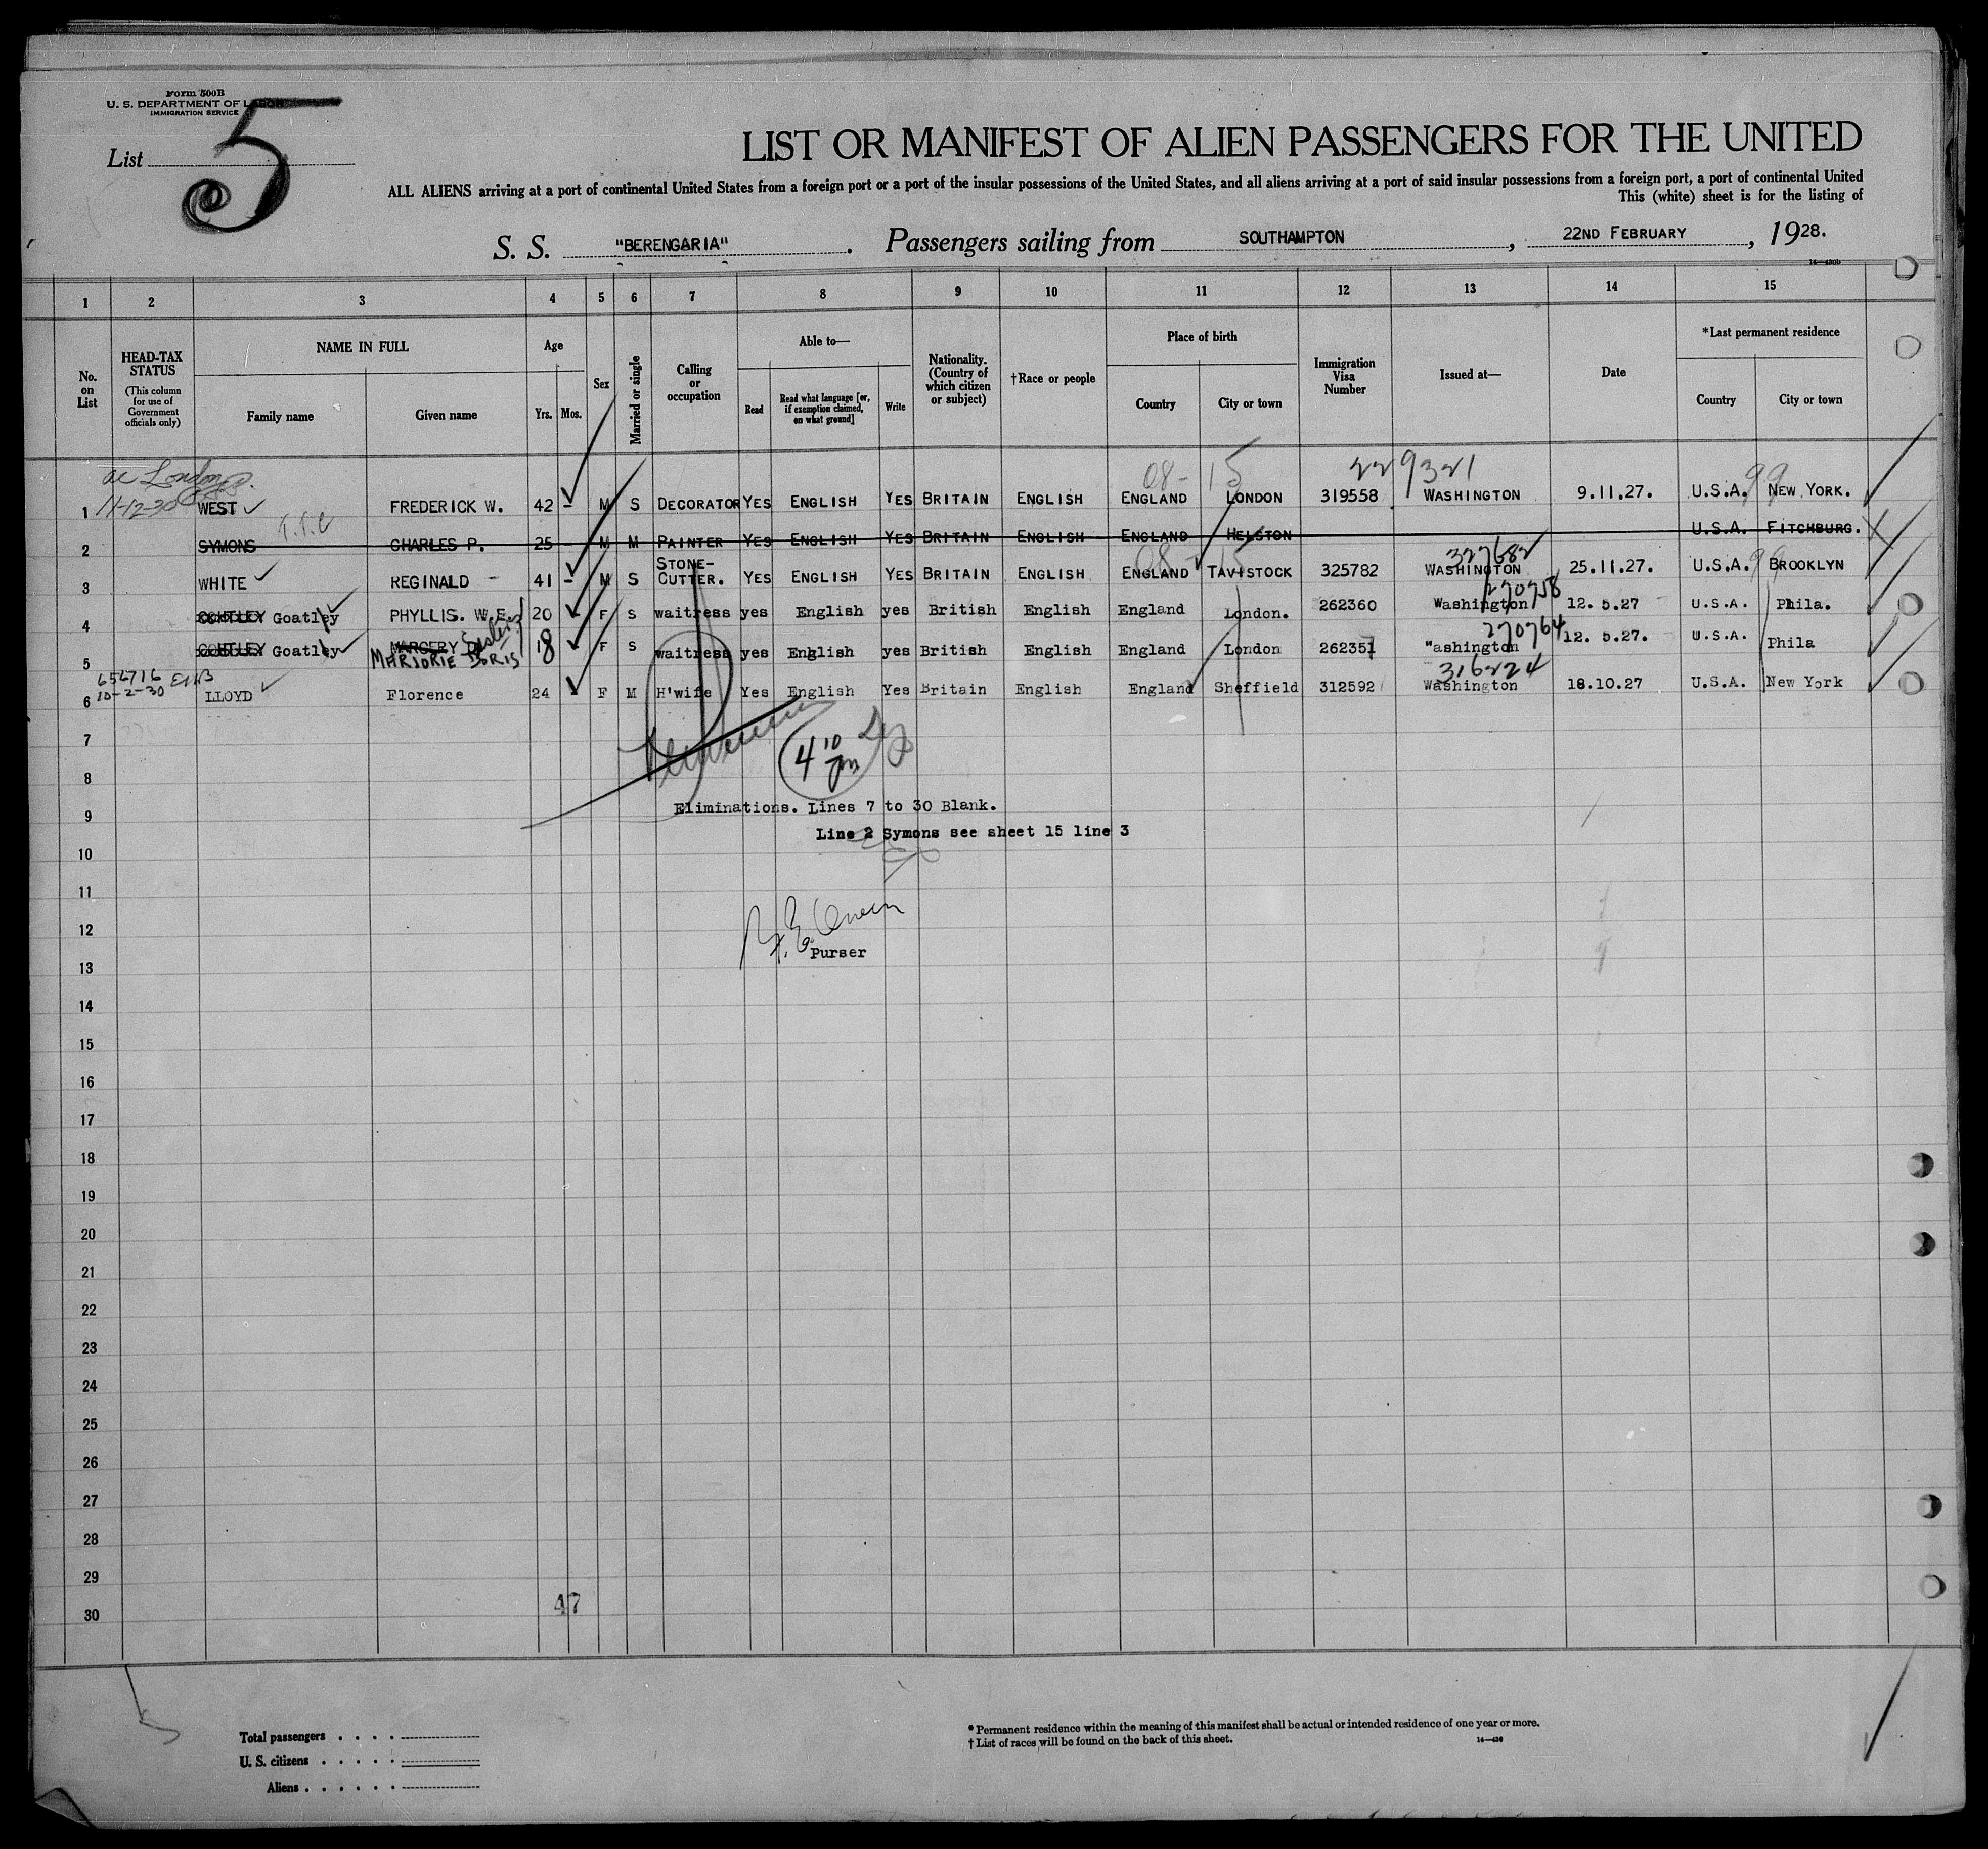 Form 500B
U. S. DEPARTMENT OF LABOR
IMMIGRATION SERVICE
List 5
LIST OR MANIFEST OF ALIEN PASSENGERS FOR THE UNITED
ALL ALIENS arriving at a port of continental United States from a foreign port or a port of the insular possessions of the United States, and all aliens arriving at a port of said insular possessions from a foreign port, a port of continental United
This (white) sheet is for the listing of
S. S. "BERENGARIA". Passengers sailing from SOUTHAMPTON, 22ND FEBRUARY, 1928.
14—430b
1 2 3 4 5 6 7 8 9 10 11 12 13 14 15
No. on List
HEAD-TAX STATUS (This column for use of Government officials only)
NAME IN FULL Family name Given name
Age Yrs. Mos.
Sex
Married or single
Calling or occupation
Able to— Read Read what language [or, if exemption claimed, on what ground] Write
Nationality. (Country of which citizen or subject)
†Race or people
Place of birth Country City or town
Immigration Visa Number
Issued at—
Date
*Last permanent residence Country City or town
London
11-12-30
08-15 229321 99
1 WEST FREDERICK W. 42 - M S DECORATOR YES ENGLISH YES BRITAIN ENGLISH ENGLAND LONDON 319558 WASHINGTON 9.11.27. U.S.A. NEW YORK.
2 SYMONS CHARLES P. 25 - M M PAINTER YES ENGLISH YES BRITAIN ENGLISH ENGLAND HELSTON U.S.A. FITCHBURG.
08-15 327682 99
3 WHITE REGINALD - 41 - M S STONE-CUTTER. YES ENGLISH YES BRITAIN ENGLISH ENGLAND TAVISTOCK 325782 WASHINGTON 25.11.27. U.S.A. BROOKLYN
270758
4 Goatley PHYLLIS. W.E. 20 - F S waitress yes English yes British English England London. 262360 Washington 12. 5.27 U.S.A. Phila.
Sisters 270764
5 Goatley MARGERY D. MARJORIE DORIS 18 F S waitress yes English yes British English England London 262357 "ashington 12. 5.27. U.S.A. Phila
656716
10-2-30 316224
6 LLOYD Florence 24 - F M H'wife Yes English Yes Britain English England Sheffield 312592 Washington 18.10.27 U.S.A. New York
7
4 10 pm
8
Eliminations. Lines 7 to 30 Blank.
9
Line 2 Symons see sheet 15 line 3
10
11
12
Purser
13
14
15
16
17
18
19
20
21
22
23
24
25
26
27
28
29
47
30
Total passengers
U. S. citizens
Aliens
* Permanent residence within the meaning of this manifest shall be actual or intended residence of one year or more.
† List of races will be found on the back of this sheet.
14—430